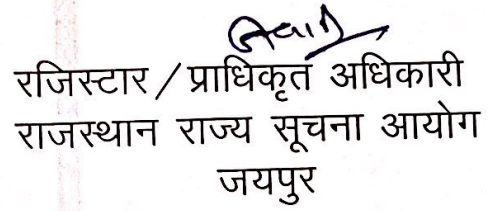 रजिस्टार / प्राधिकृत अधिकारी
राजस्थान राज्य सूचना आयोग
जयपुर